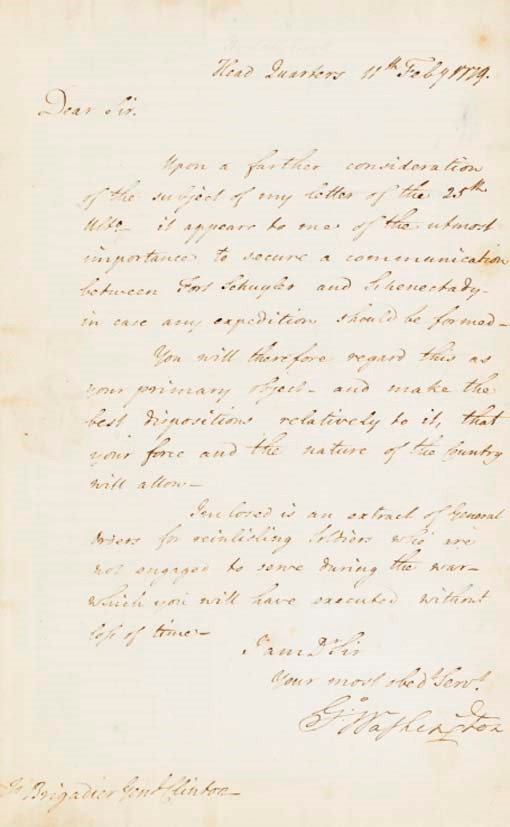 Head Quarters 11th Feby 1779.
Dear Sir.
Upon a farther consideration
of the subject of my letter of the 25th
Ulto. it appears to me of the utmost
importance to secure a communication
between Fort Schuyler and Schenectady–
in case any expedition should be formed–
You will therefore regard this as
your primary object– and make the
best dispositions relatively to it, that
your force and the nature of the Country
will allow–
Inclosed is an extract of General
Orders for reinlisting Soldiers who are
not engaged to serve during the war–
which you will have executed without
loss of time–
I am Dr Sir
Your most obedt Servt.
Go Washington
Brigadier Genl Clinton–